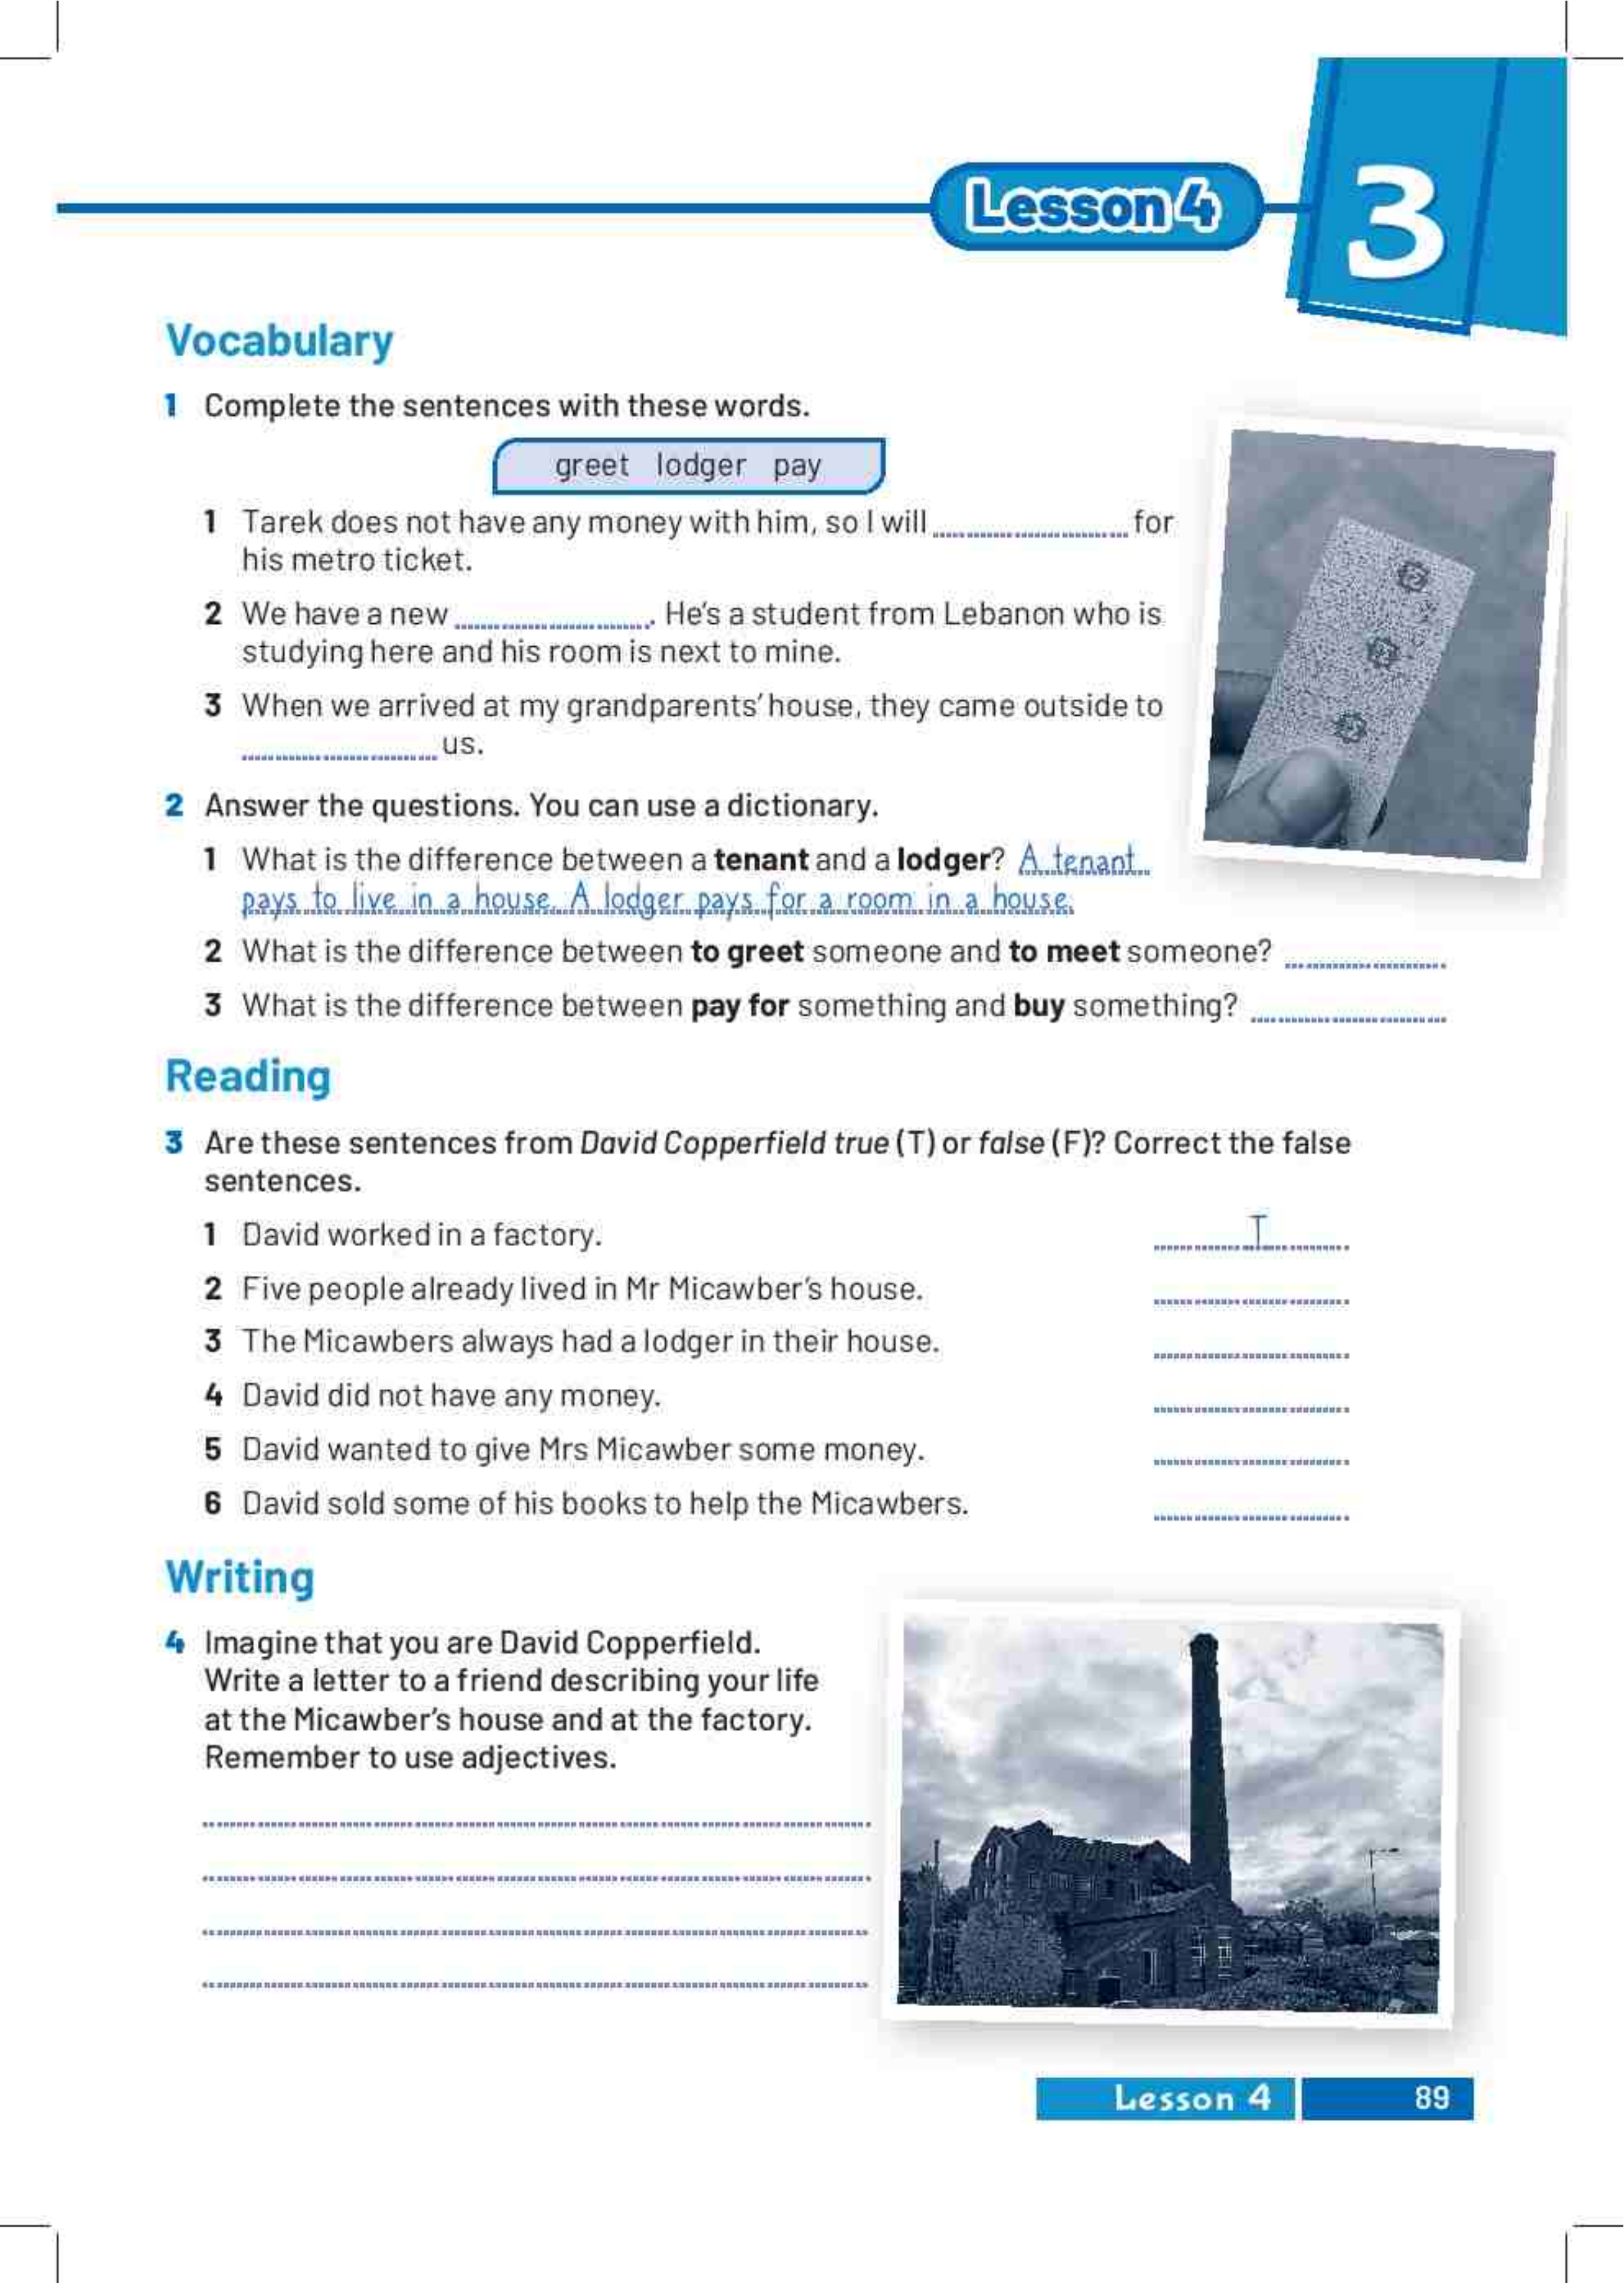 Lesson 4
3
Vocabulary
1 Complete the sentences with these words.
greet lodger pay
1 Tarek does not have any money with him, so I will for
his metro ticket.
2 We have a new . He's a student from Lebanon who is
studying here and his room is next to mine.
3 When we arrived at my grandparents' house, they came outside to
us.
2 Answer the questions. You can use a dictionary.
1 What is the difference between a tenant and a lodger? A tenant
pays to live in a house. A lodger pays for a room in a house.
2 What is the difference between to greet someone and to meet someone?
3 What is the difference between pay for something and buy something?
Reading
3 Are these sentences from David Copperfield true (T) or false (F)? Correct the false
sentences.
1 David worked in a factory. T
2 Five people already lived in Mr Micawber's house.
3 The Micawbers always had a lodger in their house.
4 David did not have any money.
5 David wanted to give Mrs Micawber some money.
6 David sold some of his books to help the Micawbers.
Writing
4 Imagine that you are David Copperfield.
Write a letter to a friend describing your life
at the Micawber's house and at the factory.
Remember to use adjectives.
Lesson 4 89